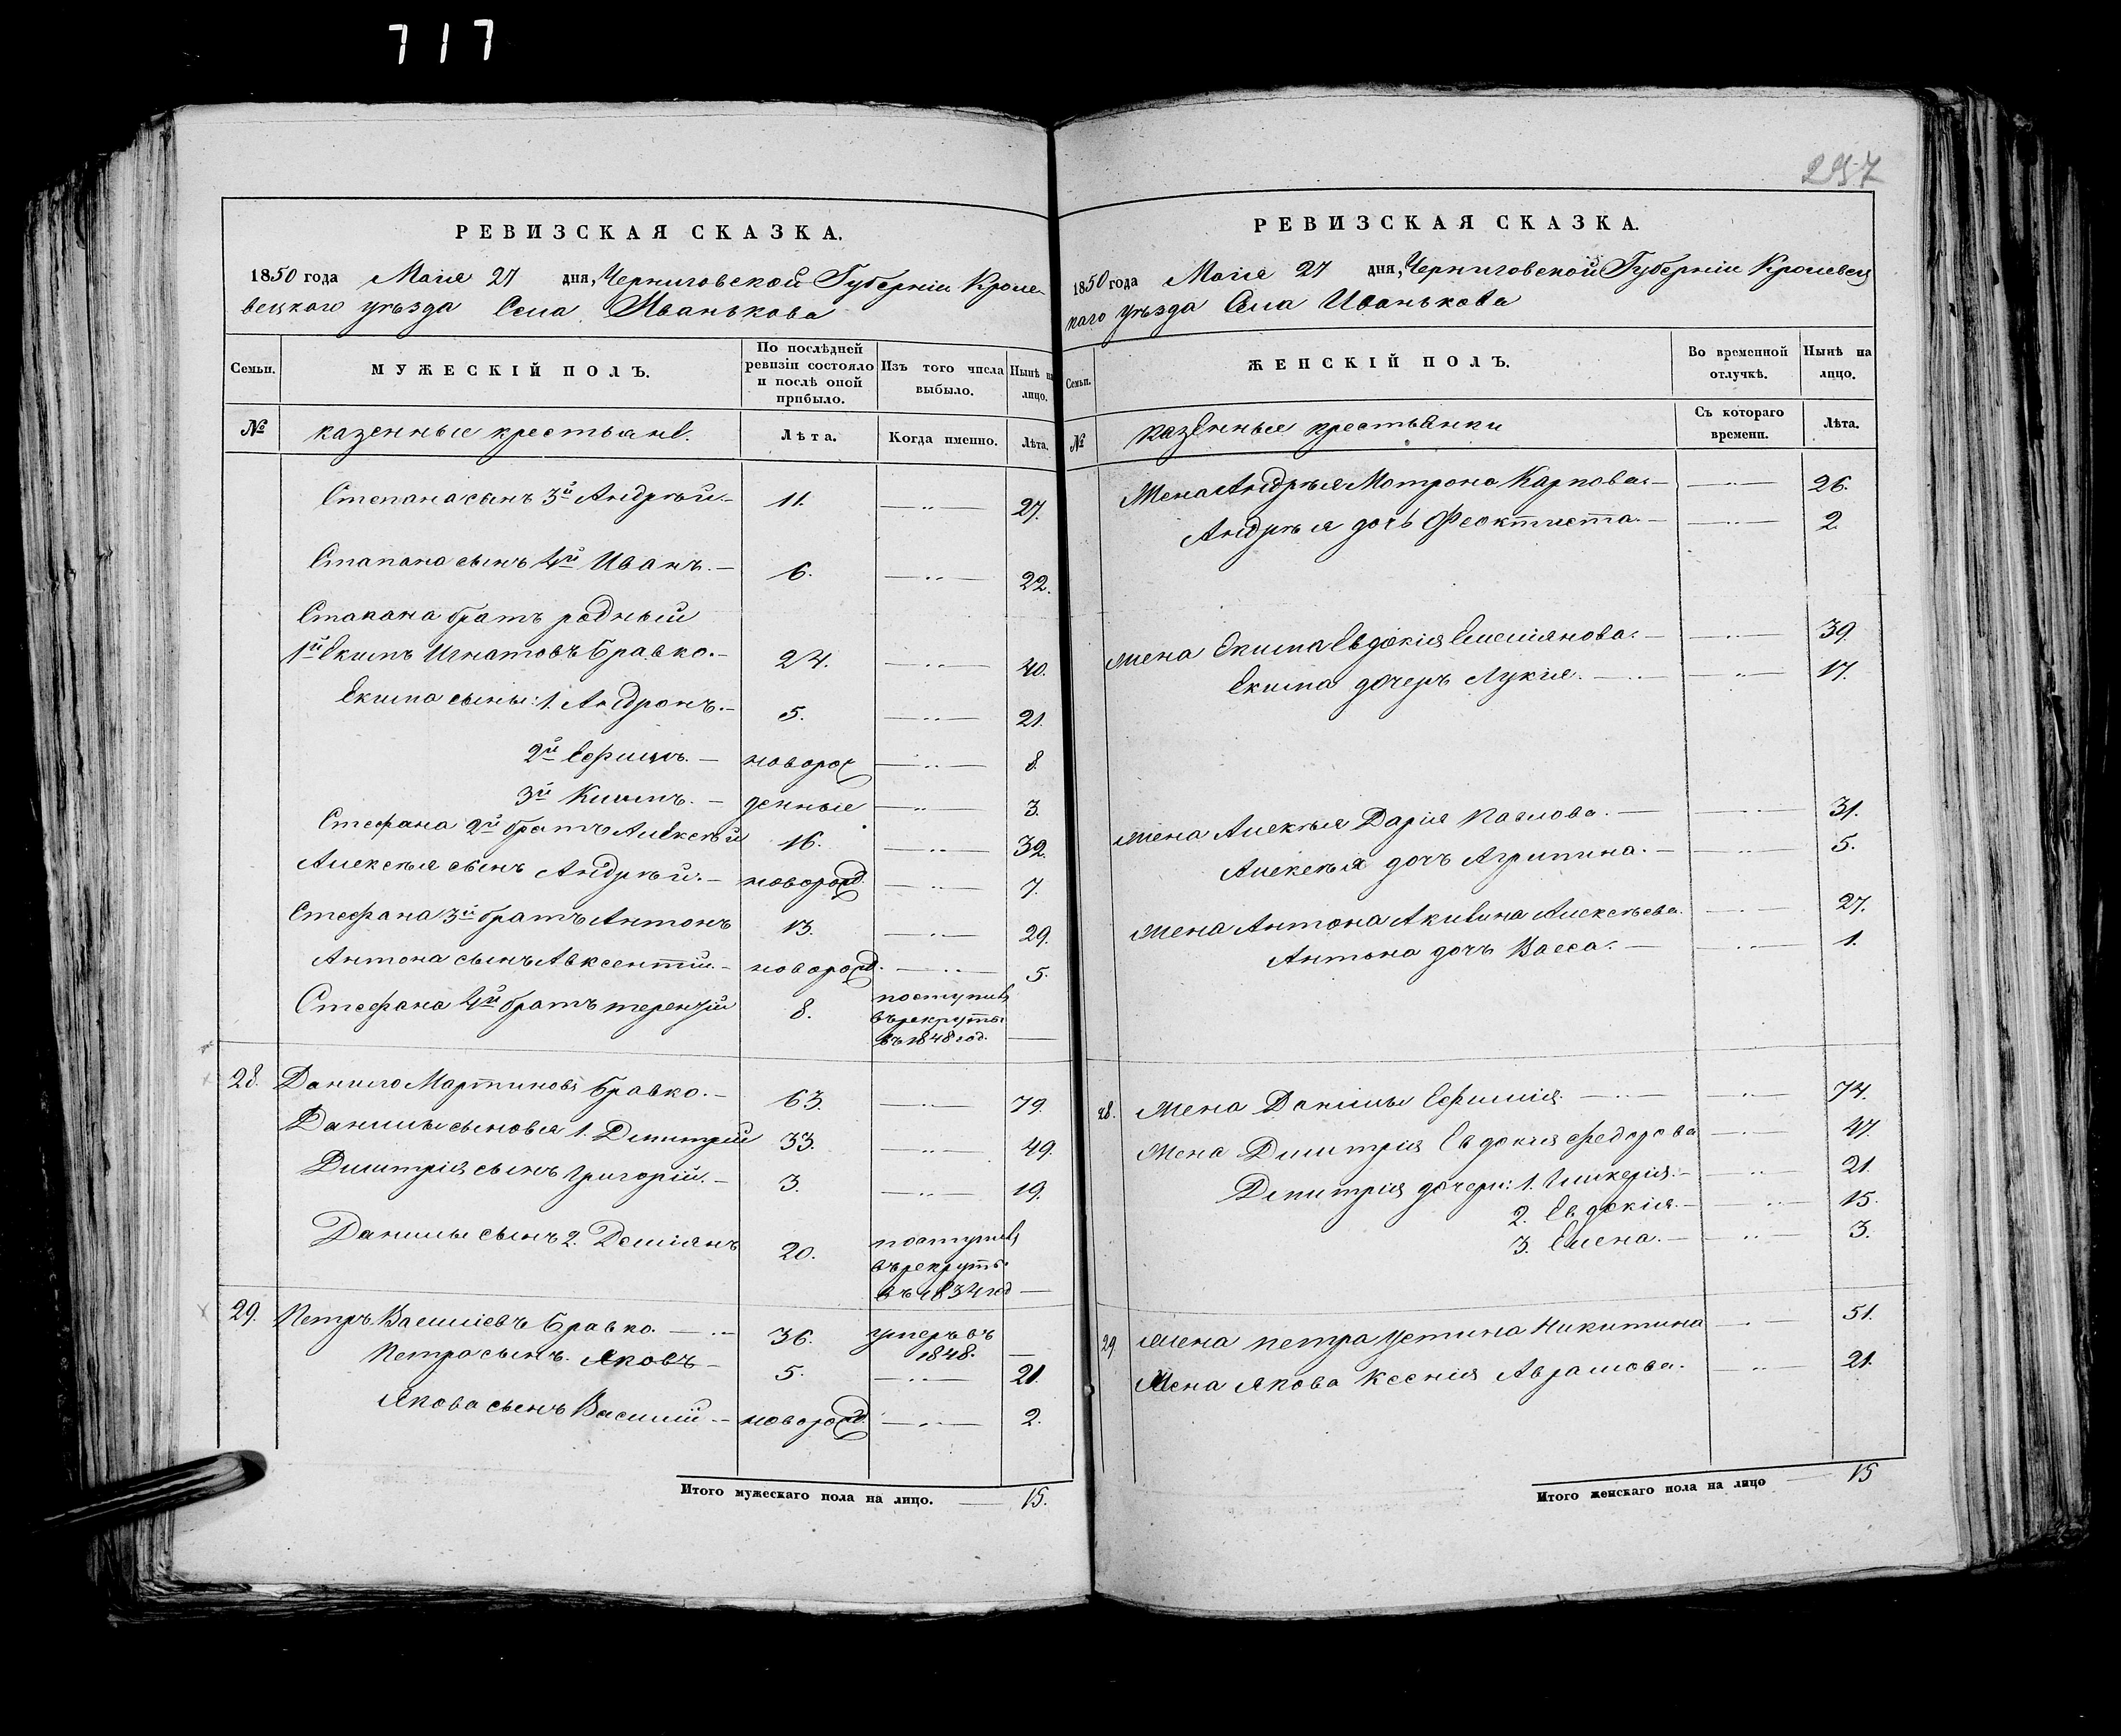 717
257
РЕВИЗСКАЯ СКАЗКА.
1850 года Маія 27 дня, Черниговской Губерніи Кроле-
вецкаго уѣзда Села Иванькова
Семьи. МУЖЕСКІЙ ПОЛЪ. По послѣдней ревизіи состояло и послѣ оной прибыло. Изъ того числа выбыло. Нынѣ на лицо.
№ казенные крестьяне. Лѣта. Когда именно. Лѣта.
Степана сынъ 3й Андрѣй.— 11. —..— 27.
Стапана сынъ 4й Иванъ.— 6. —..— 22.
Стапана братъ родный
1й Екимъ Игнатовъ Бравко.— 24. —..— 40.
Екима сыны: 1. Андронъ.— 5. —..— 21.
2й Ефимъ.— новорож —..— 8.
3й Климъ.— денные —..— 3.
Стефана 2й братъ Алексѣй 16. —..— 32.
Алексѣя сынъ Андрѣй.— новорожд. —..— 7.
Стефана 3й братъ Антонъ 13. —..— 29.
Антона сынъ Авксентій.— новорожд. —..— 5.
Стефана 4й братъ терентій 8. поступилъ
въ рекруты
въ 1848 год. —
28. Данило Мартиновъ Бравко.— 63. —..— 79.
Данилы сыновья 1. Димитрій 33. —..— 49.
Димитрія сынъ Григорій.— 3. —..— 19.
Данилы сынъ 2. Деміянъ 20. поступилъ
въ рекруты
въ 1834 год —
29. Петръ Василіевъ Бравко.— 36. умеръ въ
1848. —
Петра сынъ. Яковъ— 5. —..— 21.
Якова сынъ Василій.— новорожд. —..— 2.
Итого мужескаго пола на лицо. — 15.
РЕВИЗСКАЯ СКАЗКА.
1850 года Маія 27 дня, Черниговской Губерніи Кролевец
каго уѣзда Села Иванькова
Семьи. ЖЕНСКІЙ ПОЛЪ. Во временной отлучкѣ. Нынѣ на лицо.
№ казенные крестьянки Съ котораго времени. Лѣта.
Жена Андрѣя Мотрона Карпова.— —..— 26.
Андрѣя дочь Феоктиста.— —..— 2.
Жена Екима Евдокія Емеліянова.— —..— 39.
Екима дочерь Лукія.— —..— 17.
Жена Алексѣя Дарія Павлова.— —..— 31.
Алексѣя дочъ Агрипина.— —..— 5.
Жена Антона Акилина Алексѣева. —..— 27.
Антона дочъ Васса.— —..— 1.
28. Жена Данилы Ефимія. —..— 74.
Жена Димитрія Евдокія Федорова —..— 47.
Димитрія дочери: 1. Гликерія.— —..— 21.
2. Евдокія.— —..— 15.
3. Елена.— —..— 3.
29 Жена Петра Устина Никитина —..— 51.
Жена Якова Ксенія Аврамова. —..— 21.
Итого женскаго пола на лицо — 15